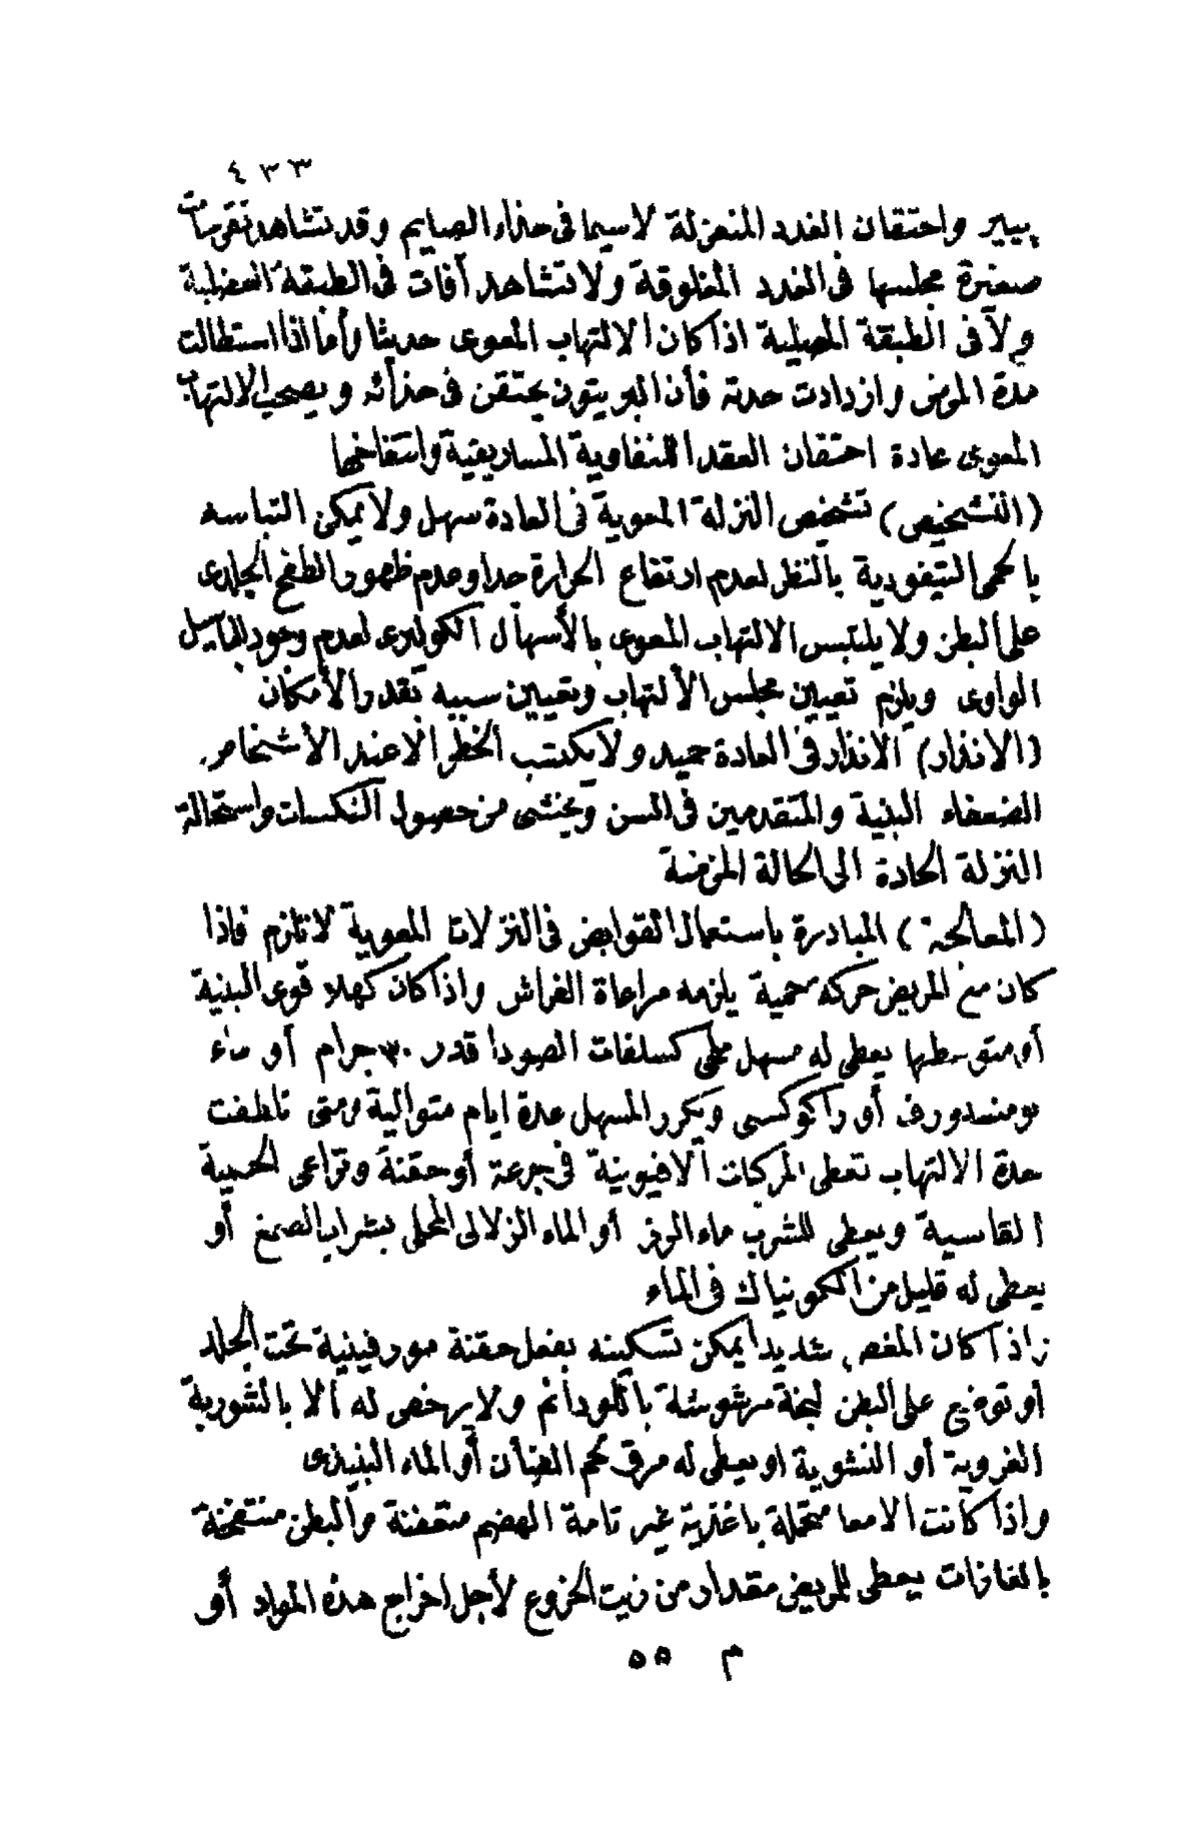 ٤٣٣
پيير واحتقان الغدد المنعزلة لاسيما فى حذاء الصايم وقد تشاهد تقرحات
صغيرة مجلسها فى الغدد المغلوقة ولا تشاهد آفات فى الطبقة العضلية
ولا فى الطبقة المصلية اذا كان الالتهاب المعوى حديثا وأما اذا استطالت
مدة المرض وازدادت حدته فأن البريتون يحتقن فى حذائه ويصحب الالتهاب
المعوى عادة احتقان العقد اللنفاوية المساريقية وانتفاخها
(التشخيص) تشخيص النزلة المعوية فى العادة سهل ولا يمكن التباسه
بالحمى التيفودية بالنظر لعدم ارتفاع الحرارة جدا وعدم ظهور الطفح الجلدى
على البطن ولا يلتبس الالتهاب المعوى بالأسهال الكوليرى لعدم وجود الباسيل
الواوى ويلزم تعيين مجلس الألتهاب وتعيين سببه بقدر الأمكان
(الانذار) الانذار فى العادة حميد ولا يكتسب الخطر الا عند الأشخاص
الضعفاء البنية والمتقدمين فى السن ويخشى من حصول النكسات واستحالة
النزلة الحادة الى الحالة المزمنة
(المعالجة) المبادرة باستعمال القوابض فى النزلات المعوية لا تلزم فاذا
كان مع المريض حركه حمية يلزمه مراعاة الفراش واذا كان كهلا قوى البنية
أو متوسطها يعطى له مسهل ملحى كسلفات الصودا قدر ٣٠ جرام أو ماء
بومنسدورف أو راكوكسى ويكرر المسهل عدة ايام متوالية ومتى تلطفت
حدة الالتهاب تعطى المركبات الافيونية فى جرعة أو حقنة وتراعى الحمية
القاسية ويعطى للشرب ماء الرز أو الماء الزلالى المحلى بشراب الصمغ أو
يعطى له قليل من الكونياك فى الماء
واذا كان المغص شديدا يمكن تسكينه بفعل حقنة مورفينية تحت الجلد
او توضع على البطن لبخة مرشوشة بالكلودانم ولا يرخص له الا بالشوربة
الغروية أو النشوية او يعطى له مرق لحم الضأن أو الماء النبيذى
واذا كانت الامعا محتملة باغذية غير تامة الهضم متعفنة والبطن منتفخة
بالغازات يعطى للمريض مقدار من زيت الخروع لأجل اخراج هذه المواد أو
م ٥٥